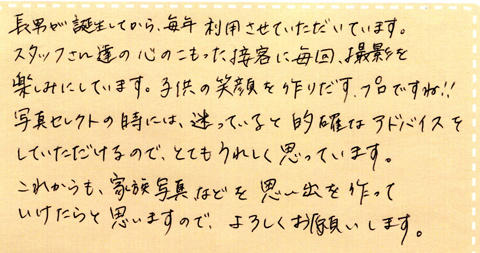 長男が誕生してから、毎年利用させていただいています。
スタッフさん達の心のこもった接客に毎回、撮影を
楽しみにしています。子供の笑顔を作りだす、プロですね!!
写真セレクトの時には、迷っていると的確なアドバイスを
していただけるので、とてもうれしく思っています。
これからも、家族写真などを思い出を作って
いけたらと思いますので、よろしくお願いします。